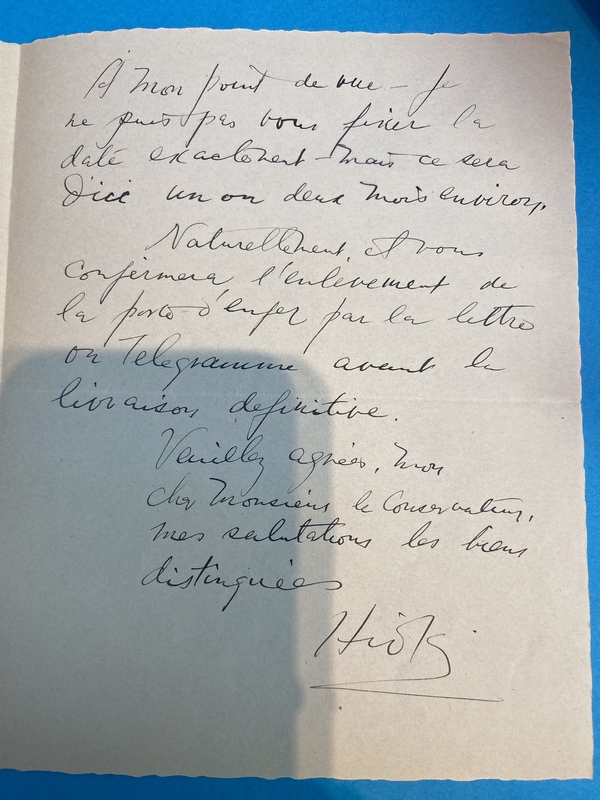 A mon point de vue - je
ne puis pas vous fixer la
date exactement - mais ce sera
D'ici un ou deux mois environ,
Naturellement, et vous
confirmera l'enlevement de
la porte d'enfer par la lettre
ou Telegramme avant la
livraison definitive.
Veuillez agrées, mon
cher Monsieur le Conservateur,
mes salutations les biens
distinguées